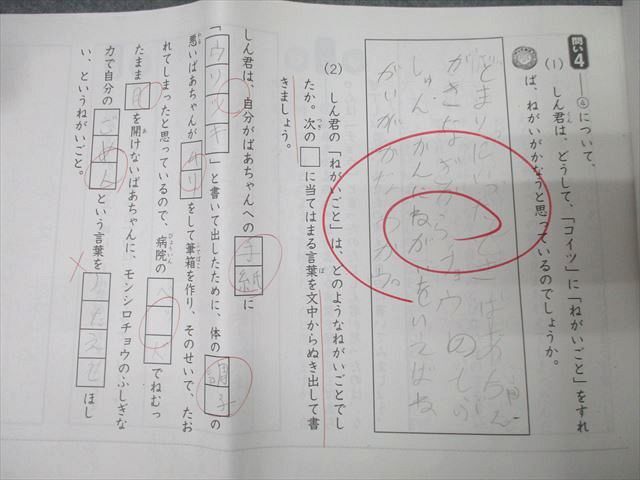 問い4 ④について、
(1) しん君は、どうして、「コイツ」に「ねがいごと」をすれ
ば、ねがいがかなうと思っているのでしょうか。
とまりにいったときばあちゃん
がさなぎからチョウの
しゅんかんにねがいをいえばね
がいがかなう
(2) しん君の「ねがいごと」は、どのようなねがいごとでし
たか。次の□に当てはまる言葉を文中からぬき出して書
きましょう。
しん君は、自分がばあちゃんへの手紙に
「ウソツキ」と書いて出したために、体の調子の
悪いばあちゃんがムリをして筆箱を作り、そのせいで、たお
れてしまったと思っているので、病院のベッドでねむっ
たまま目を開けないばあちゃんに、モンシロチョウのふしぎな
力で自分のごめんという言葉を
ほし
い、というねがいごと。